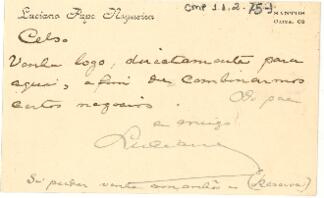 Luciano Pape Nogueira
CMP 1.1.2.75-1
SANTOS
Celso.
Venha logo, directamente para
aqui, a fim de combinarmos
certos negocios. Do pae
e amigo
Luciano
Si puder venha amanhã = (Reserva)